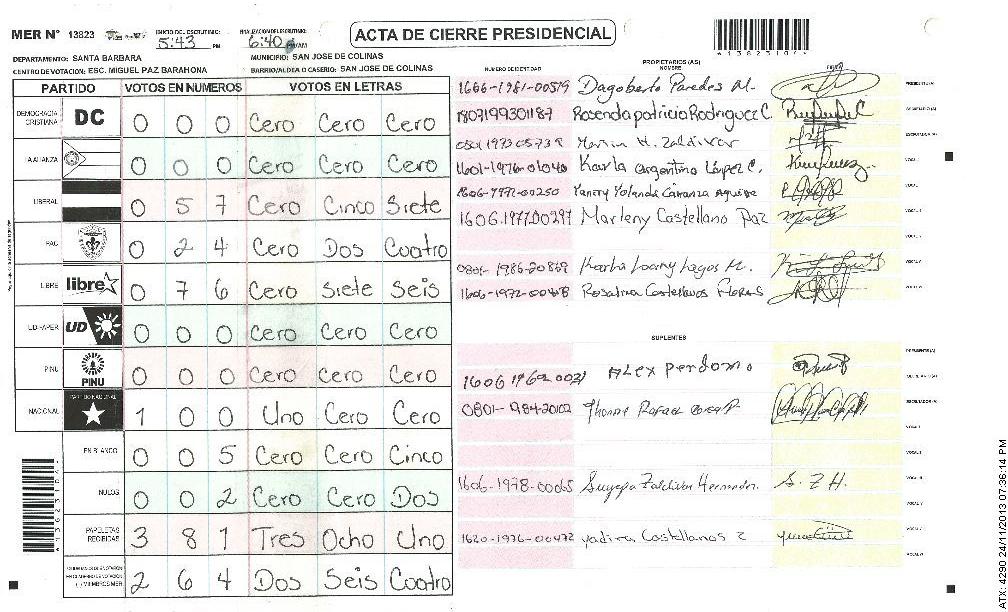 MER N° 13823 INICIO DEL ESCRUTINIO: 5:43 PM FINALIZACION ESCRUTINIO: 6:40 PM/AM
ACTA DE CIERRE PRESIDENCIAL
DEPARTAMENTO: SANTA BARBARA MUNICIPIO: SAN JOSE DE COLINAS
CENTRO DE VOTACION: ESC. MIGUEL PAZ BARAHONA BARRIO/ALDEA O CASERIO: SAN JOSE DE COLINAS
PARTIDO VOTOS EN NUMEROS VOTOS EN LETRAS
DEMOCRACIA CRISTIANA DC 0 0 0 Cero Cero Cero
ALIANZA 0 0 0 Cero Cero Cero
LIBERAL 0 5 7 Cero Cinco Siete
PAC 0 2 4 Cero Dos Cuatro
LIBRE libre 0 7 6 Cero Siete Seis
UD-FAPER UD 0 0 0 Cero Cero Cero
PINU PINU 0 0 0 Cero Cero Cero
NACIONAL PARTIDO NACIONAL 1 0 0 Uno Cero Cero
EN BLANCO 0 0 5 Cero Cero Cinco
NULOS 0 0 2 Cero Cero Dos
PAPELETAS RECIBIDAS 3 8 1 Tres Ocho Uno
2 6 4 Dos Seis Cuatro
NUMERO DE IDENTIDAD PROPIETARIOS (AS) NOMBRE FIRMA
1606-1981-00519 Dagoberto Paredes M. PRESIDENTE(A)
1807199301187 Rosenda patricia Rodriguez C. SECRETARIO(A)
H. Zaldivar ESCRUTADOR(A)
1601-1976-01040 Karla Argentina López C. VOCAL I
Yanery Yolanda Carranza
1606.1977.00297 Marleny Castellano Paz
0801-1986-20869 Karla Lagos M.
Rosalina Castellanos
SUPLENTES
Alex perdomo PRESIDENTE(A)
SECRETARIO(A)
Rafael
1606-1978-00065 Suyapa Zaldivar S. Z H.
1620-1976-00472 yadira Castellanos
ATX: 4290 24/11/2013 07:36:14 PM